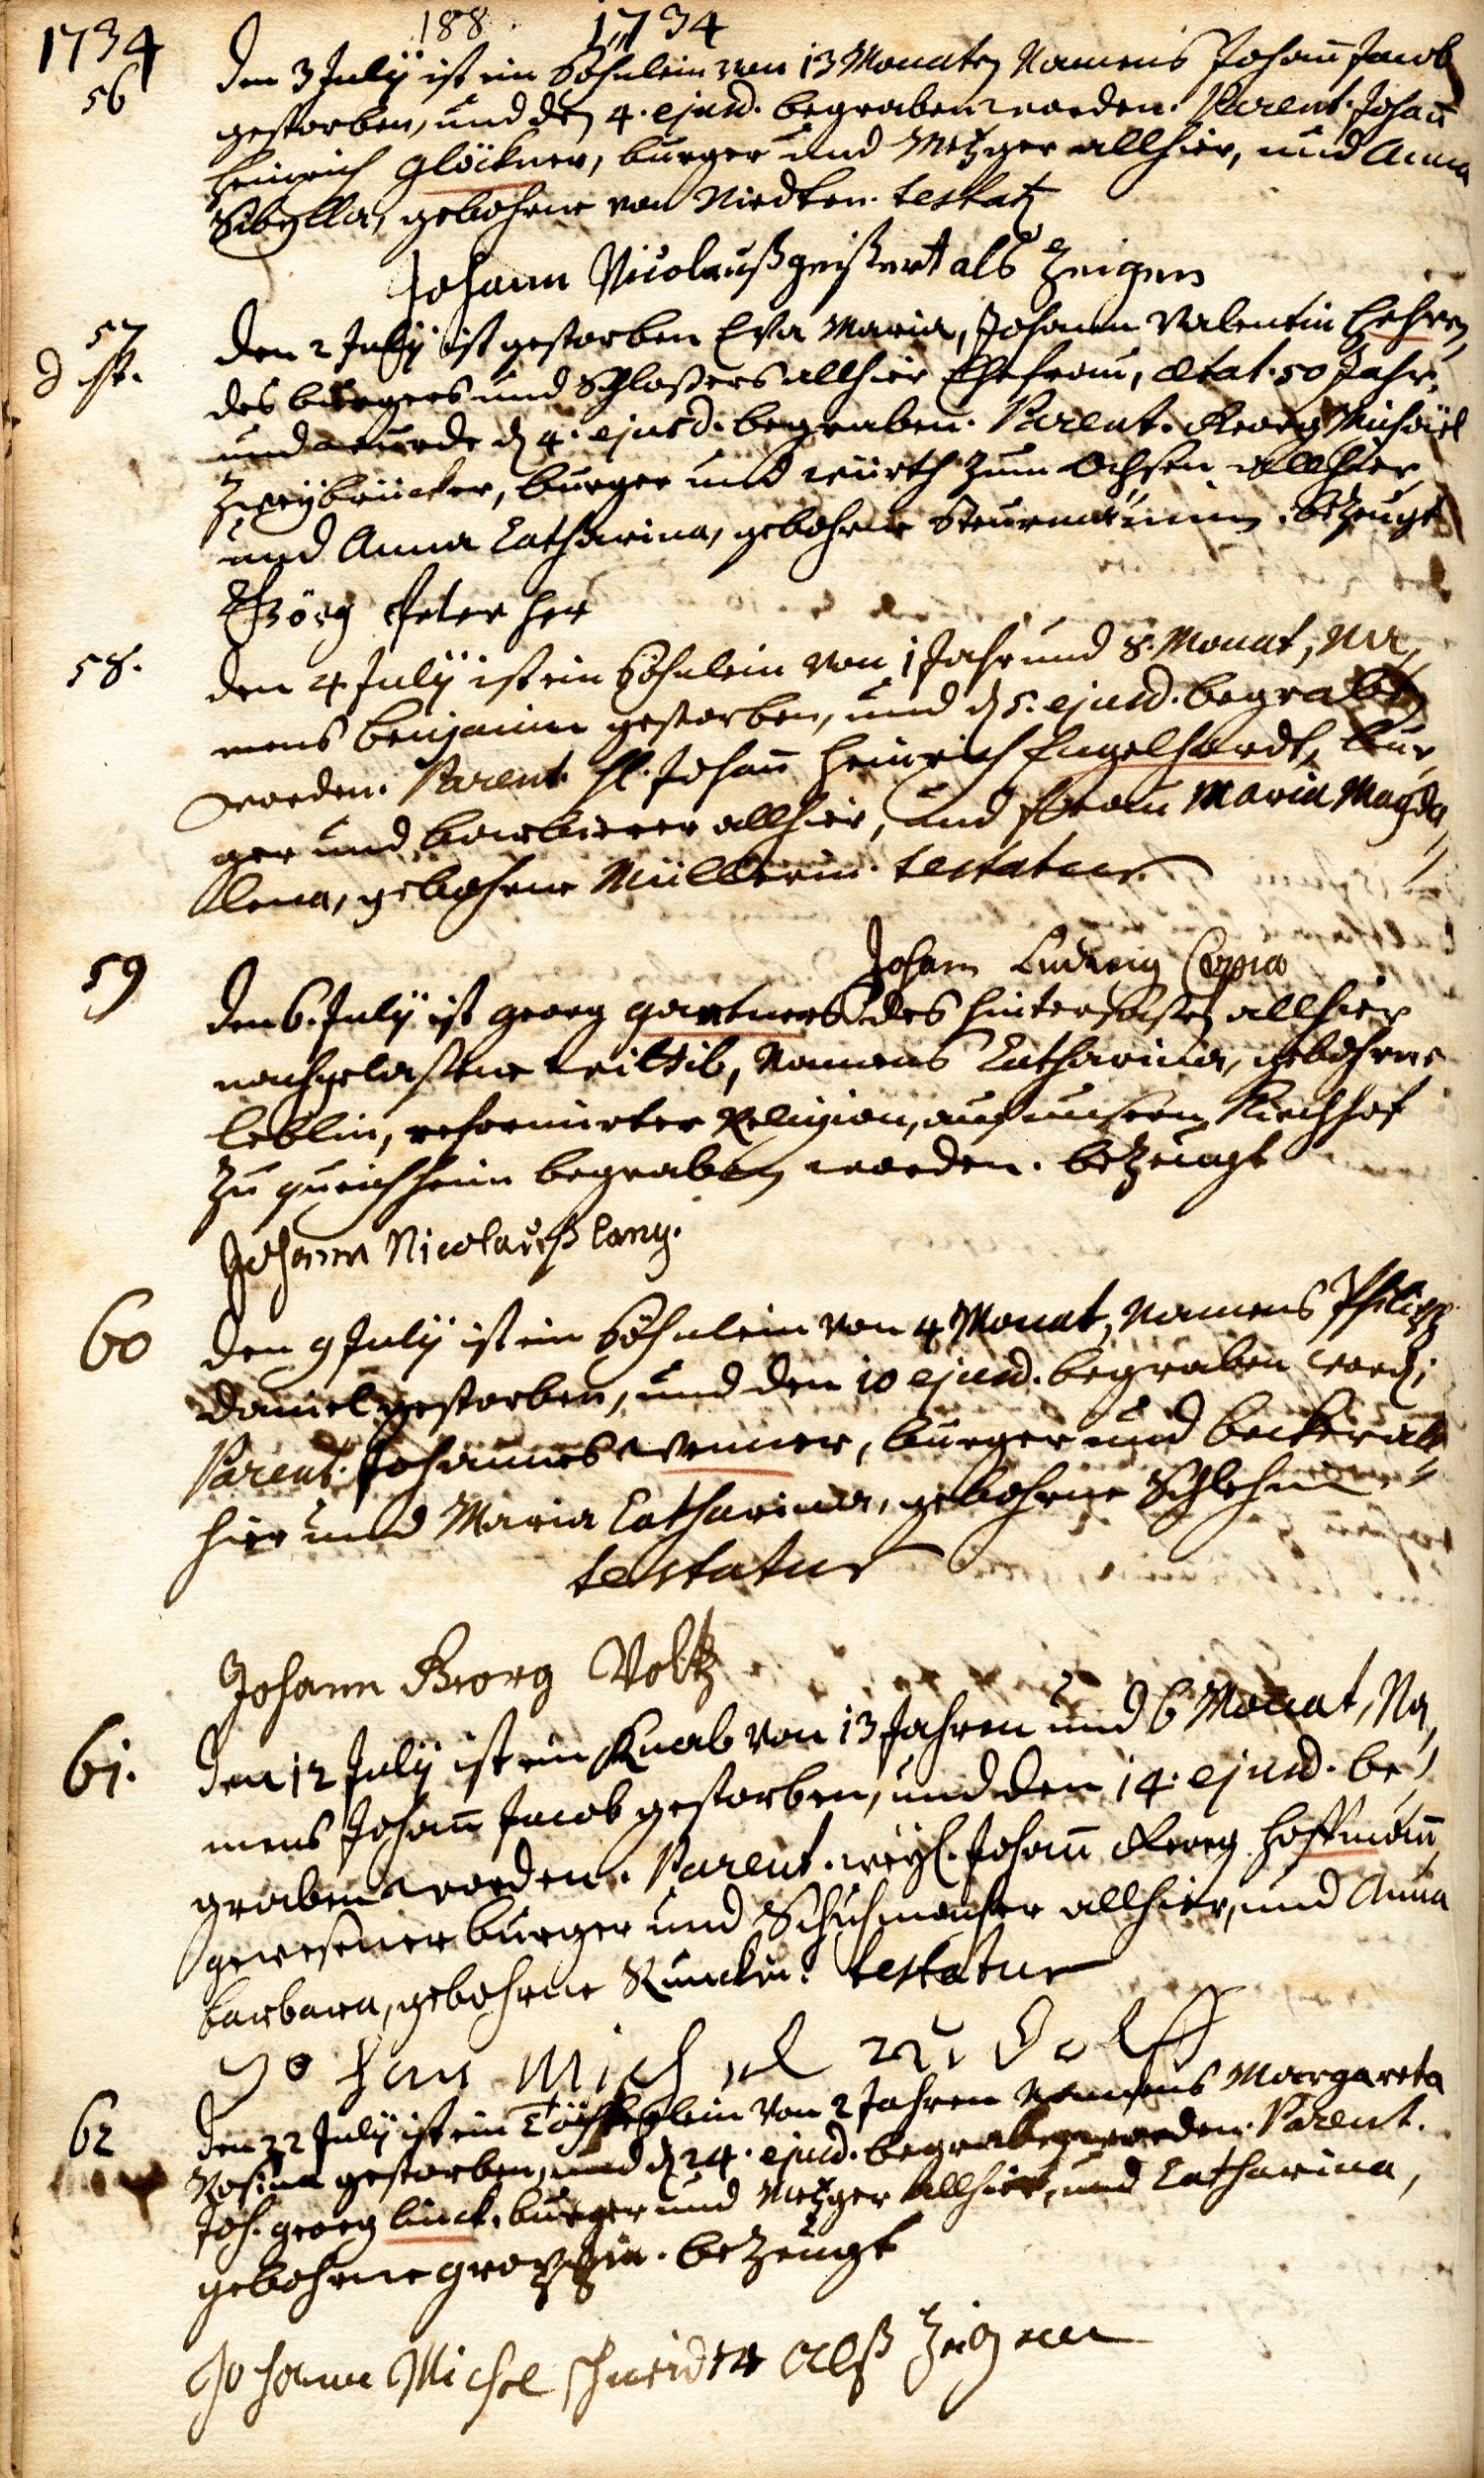 188 1734
1734
56
den 3 July ist ein Söhnlein von 13 Monaten Namens Johann Jacob
gestorben, und den 4. ejusd. begraben worden. Parent. Johann
Heinrich Glöckner, burger und Metzger allhier, und Anna
Sibylla, gebohrne von Nirdten. testat
Johann Nicolauß geißert als Zeigen
57
den 2 July ist gestorben Eva Maria, Johann Valentin
des burgers und Schlossers allhier Ehefrau, ætat. 50 Jahr,
und wurde d 4. ejusd. begraben. Parent. Georg Michaël
Zweybrücker, burger und würth zum Ochsen allhier,
und Anna Catharina, gebohrne bezeugt
Görg Peter her
58.
den 4 July ist ein Söhnlein von 1 Jahr und 8. Monat, Na,
mens Benjamin gestorben, und d 5. ejusd. begraben
worden. Parent. H. Johann Heinrich Engelhardt, bur,
ger und barbierer allhier, und Frau Maria Magda,
lena, gebohrne Müllerin. testatur
Johann Ludwig
59
den 6. July ist Georg Gartners des hintersaßen allhier
nachgelaßene wittib, Namens Catharina, gebohrne
leblin, reformirter Religion, auf unserm Kirchhof
zu queichheim begraben worden. bezeugt
Johann Nicolauß lang.
60
den 9 July ist ein Söhnlein von 4 Monat, Namens Philipp
Daniel gestorben, und den 10 ejusd. begraben word;
Parent. Johannes Wenner, burger und becker all,
hier und Maria Catharina, gebohrne
testatur
Johann Georg Voltz
61.
den 12 July ist ein Knab von 13 Jahren und 6 Monat, Na,
mens Johann Jacob gestorben, und den 14. ejusd. be,
graben worden. Parent. weyl. Johann Georg Hoffmann
gewesener burger und Schuhmacher allhier, und Anna
barbara, gebohrne testatur
Johan Michel rudolff
62
den 22 July ist ein Töchterlein von 2 Jahren Namens Margareta
Rosina gestorben, und d 24. ejusd. begraben worden. Parent.
Joh. georg burger und Metzger allhier, und Catharina,
gebohrne bezeugt
Johann Michel schneider alß Zeigen